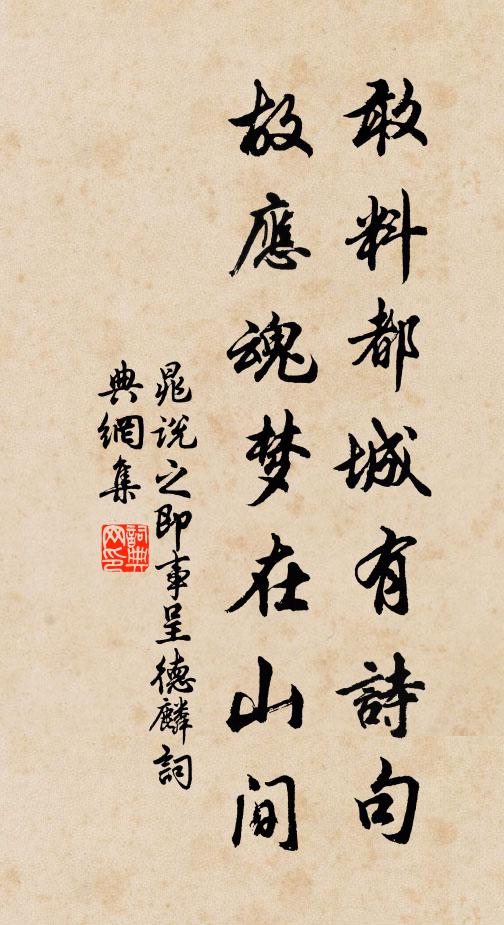 敢料都城有詩句
故應魂梦在山间
晁说之即事呈德麟詞
典網集
詞典网印